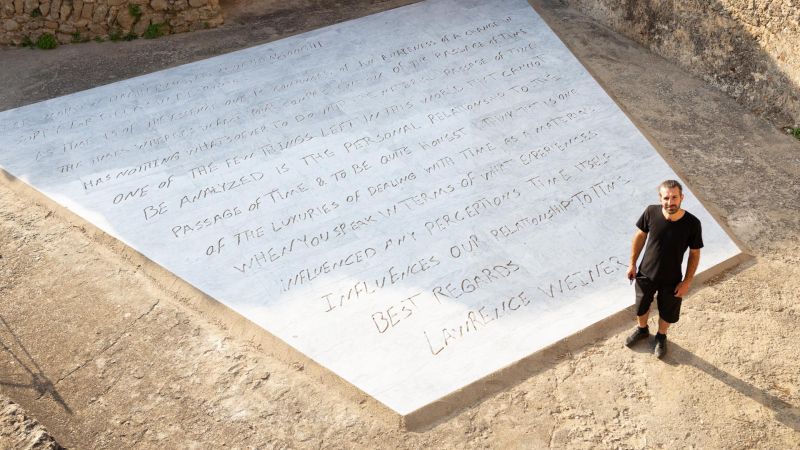 AWARENESS OF A CHANGE IN
TIME IS OF THE ESSENCE OF THE PASSAGE OF TIME
THE TIMES PASSAGE OF TIME
HAS NOTHING WHATSOEVER TO DO WITH THE NATURAL PASSAGE OF TIME
ONE OF THE FEW THINGS LEFT IN THIS WORLD THAT CANNOT
BE ANALYZED IS THE PERSONAL RELATIONSHIP TO THE
PASSAGE OF TIME & TO BE QUITE HONEST I THINK THAT IS ONE
OF THE LUXURIES OF DEALING WITH TIME AS A MATERIAL
WHEN YOU SPEAK IN TERMS OF WHAT EXPERIENCES
INFLUENCED ANY PERCEPTIONS TIME ITSELF
INFLUENCES OUR RELATIONSHIP TO TIME
BEST REGARDS
LAWRENCE WEINER